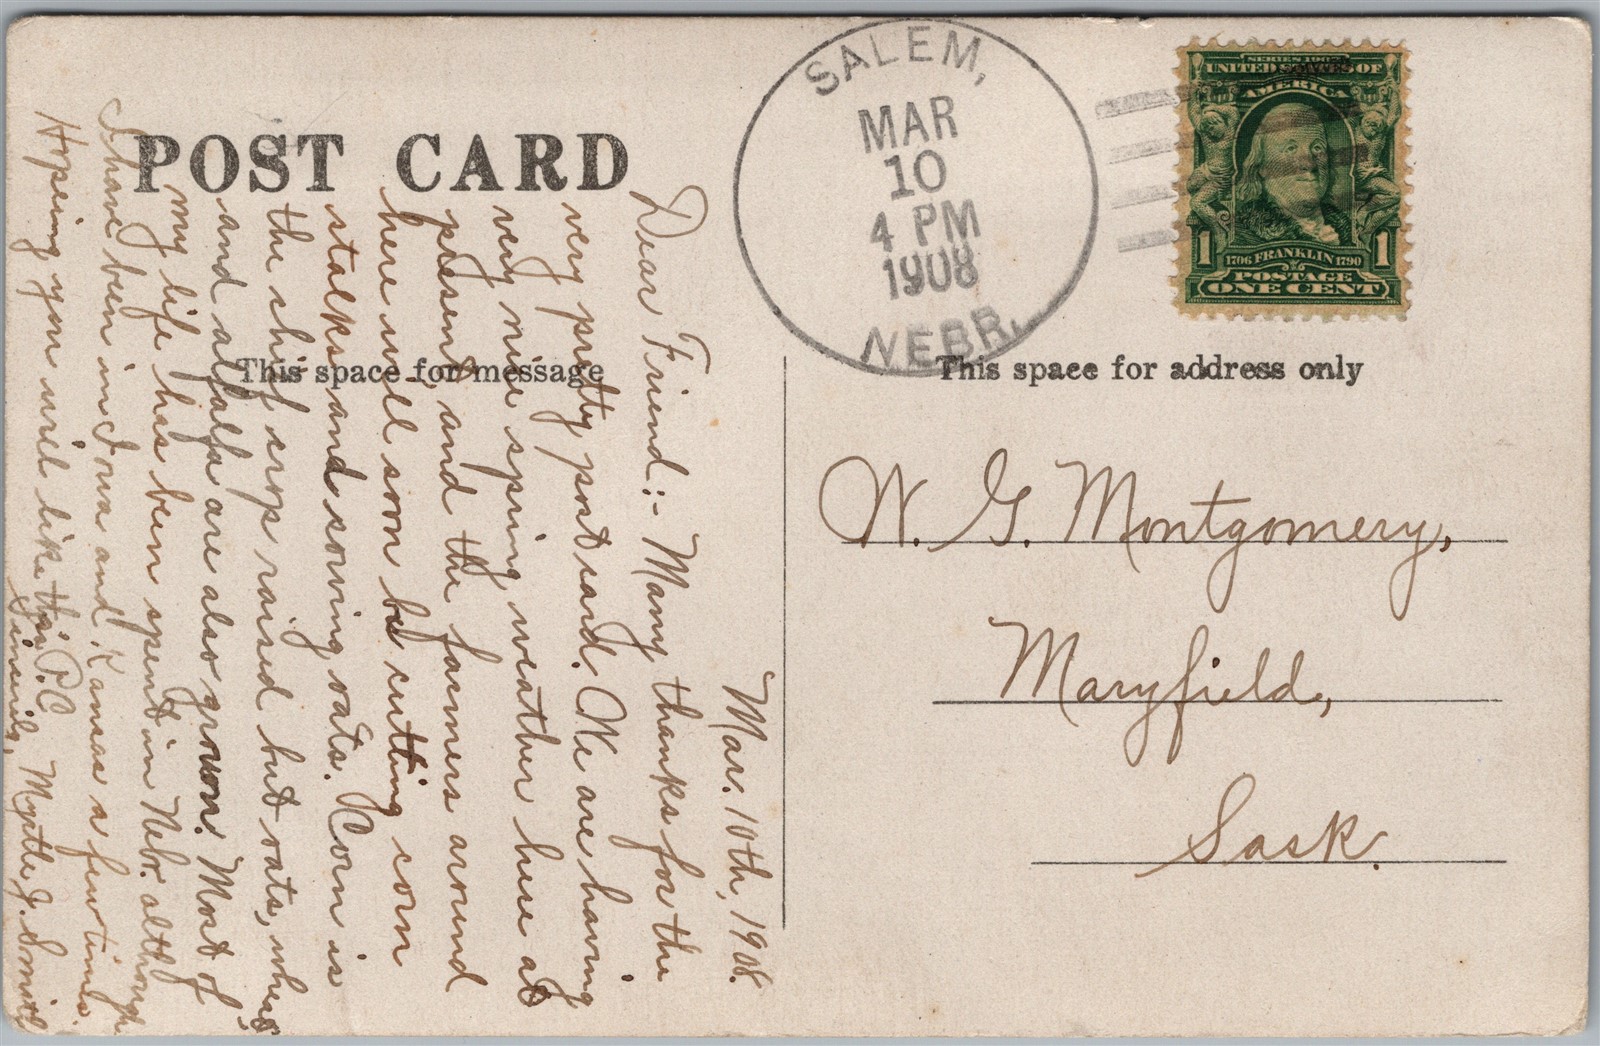 POST CARD
This space for message
This space for address only
SALEM,
MAR
10
4 PM
1908
NEBR.
SERIES 1902
UNITED STATES OF
AMERICA
1 1
1706 FRANKLIN 1790
POSTAGE
ONE CENT
W. G. Montgomery,
Maryfield,
Sask.
Mar. 10th, 1908.
Dear Friend:- Many thanks for the
very pretty post card. We are having
very nice spring weather here at
present and the farmers around
here will soon be cutting corn
stalks and sowing oats. Corn is
the chief crop raised but oats, wheat
and alfalfa are also grown. Most of
my life has been spent in Nebr. although
I have been in Iowa and Kansas a few times.
Hoping you will like this P.C.
Sincerely, Myrtle J. Smith